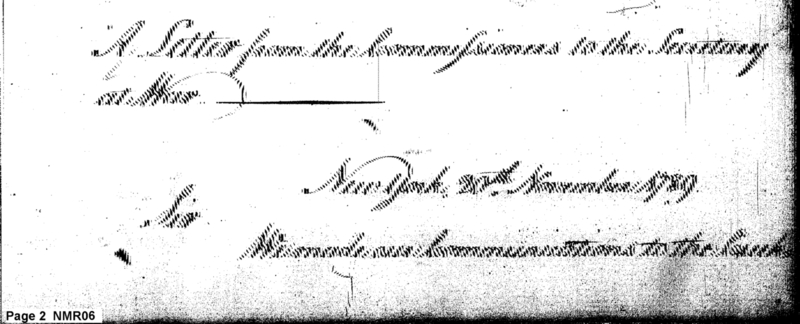 A Letter from the Commissioners to the Secretary
at War
New York, 20th November 1789
Sir
communications to the
Page 2 NMR06